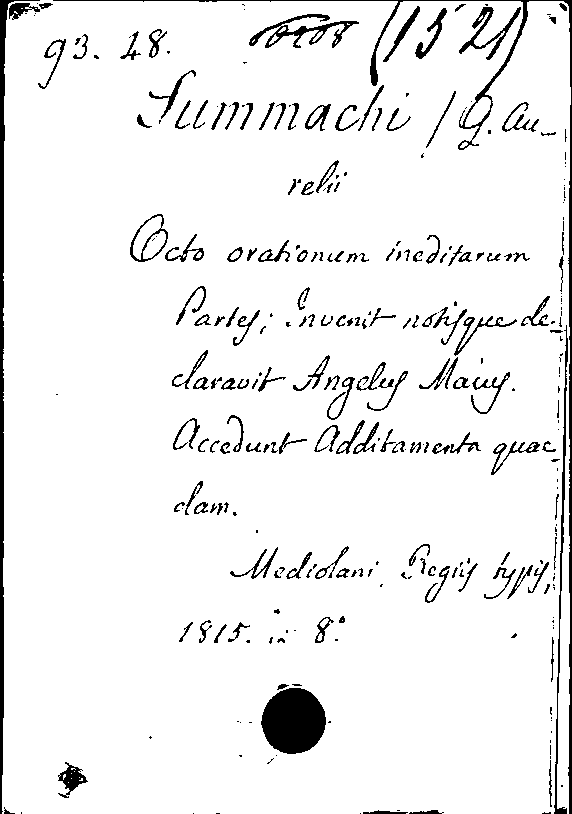 93. 48. (1521)
Summachi / Q. Au-
relii
Octo orationum ineditarum
Partes; Invenit notisque de-
claravit Angelus Maius.
Accedunt Additamenta quae-
dam.
Mediolani, Regiis typis,
1815. in 8°.